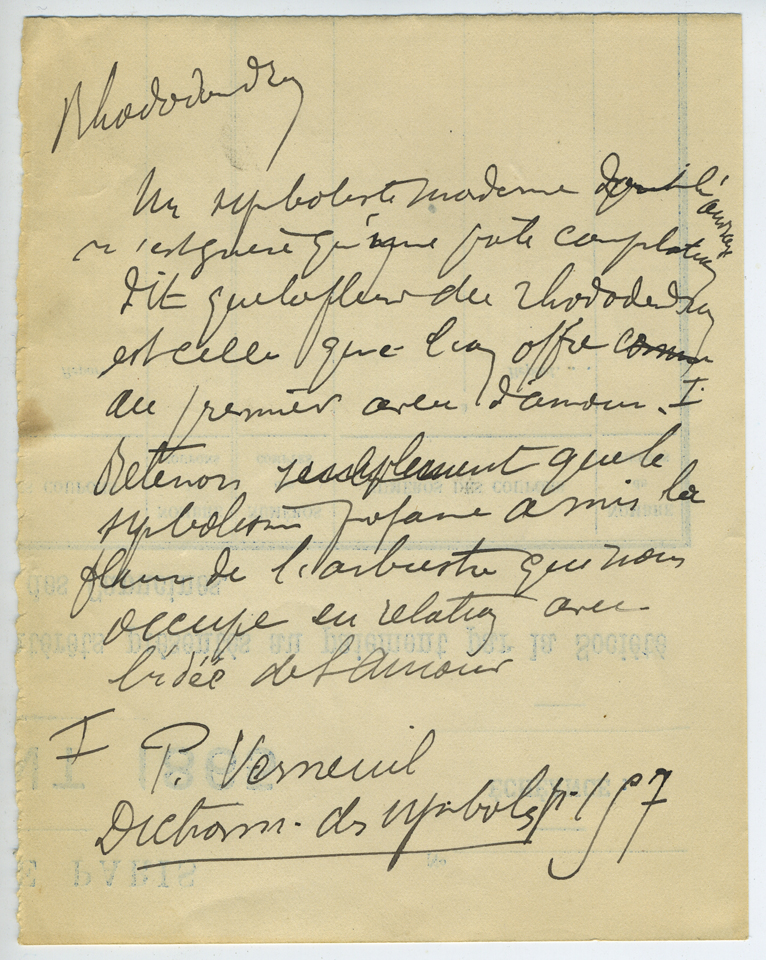 Rhododendron
Un symboliste moderne dont l'
ouvrage
n'est guère qu'une pate compilation
dit que la fleur du rhododendron
est celle que l'on offre comme
au premier aveu d'amour. I
Retenons seulement que le
symbolisme profane a mis la
fleur de l'arbuste qui nous
occupe en relation avec
l'idée de l'Amour
I P. Verneuil
Dictionn. des symboles p. 157